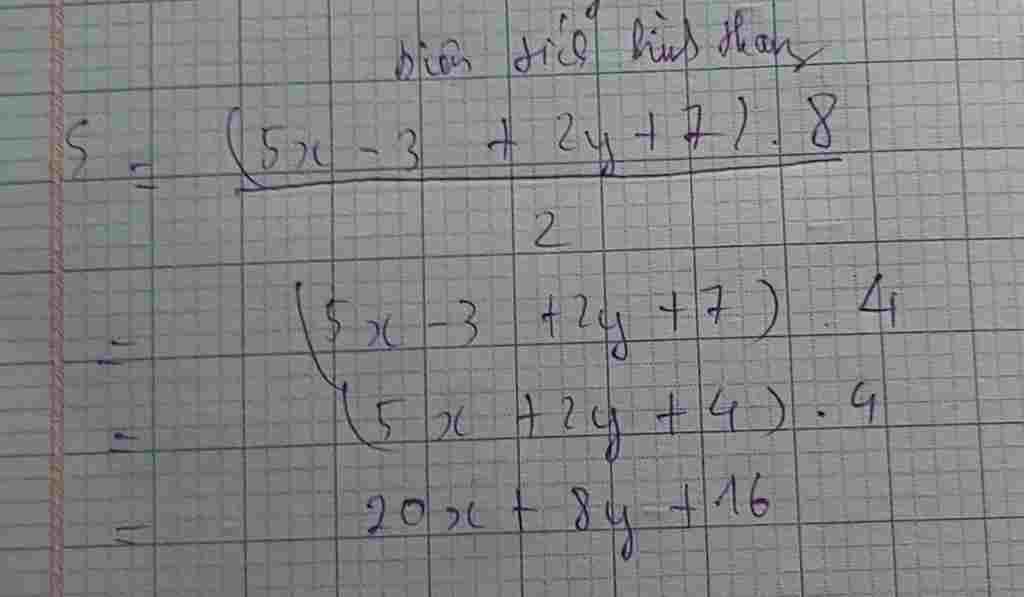 diện tích hình thang
S = (5x - 3 + 2y + 7) . 8
2
= (5x - 3 + 2y + 7) . 4
= (5x + 2y + 4) . 4
= 20x + 8y + 16